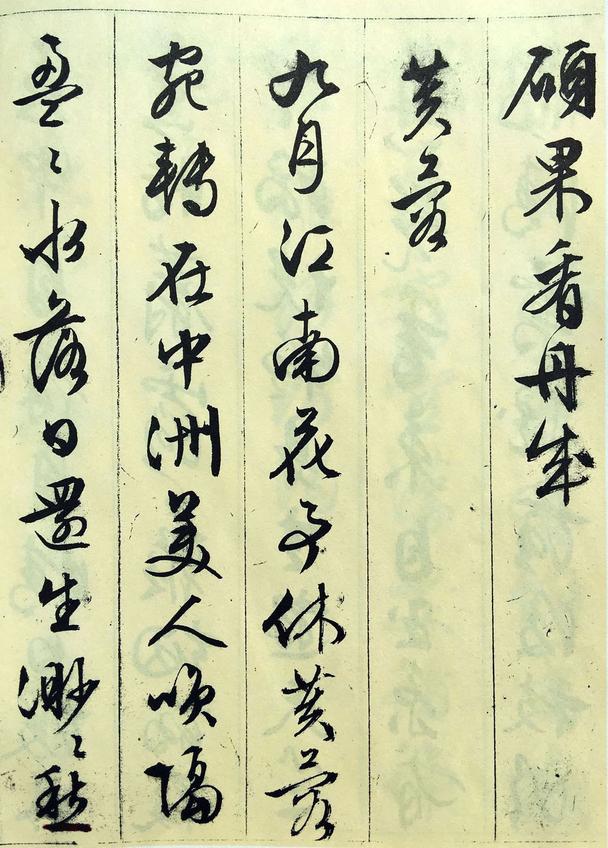 碩果看丹成
芙蓉
九月江南花事休芙蓉
宛轉在中洲美人咲隔
盈〻水落日還生渺〻愁